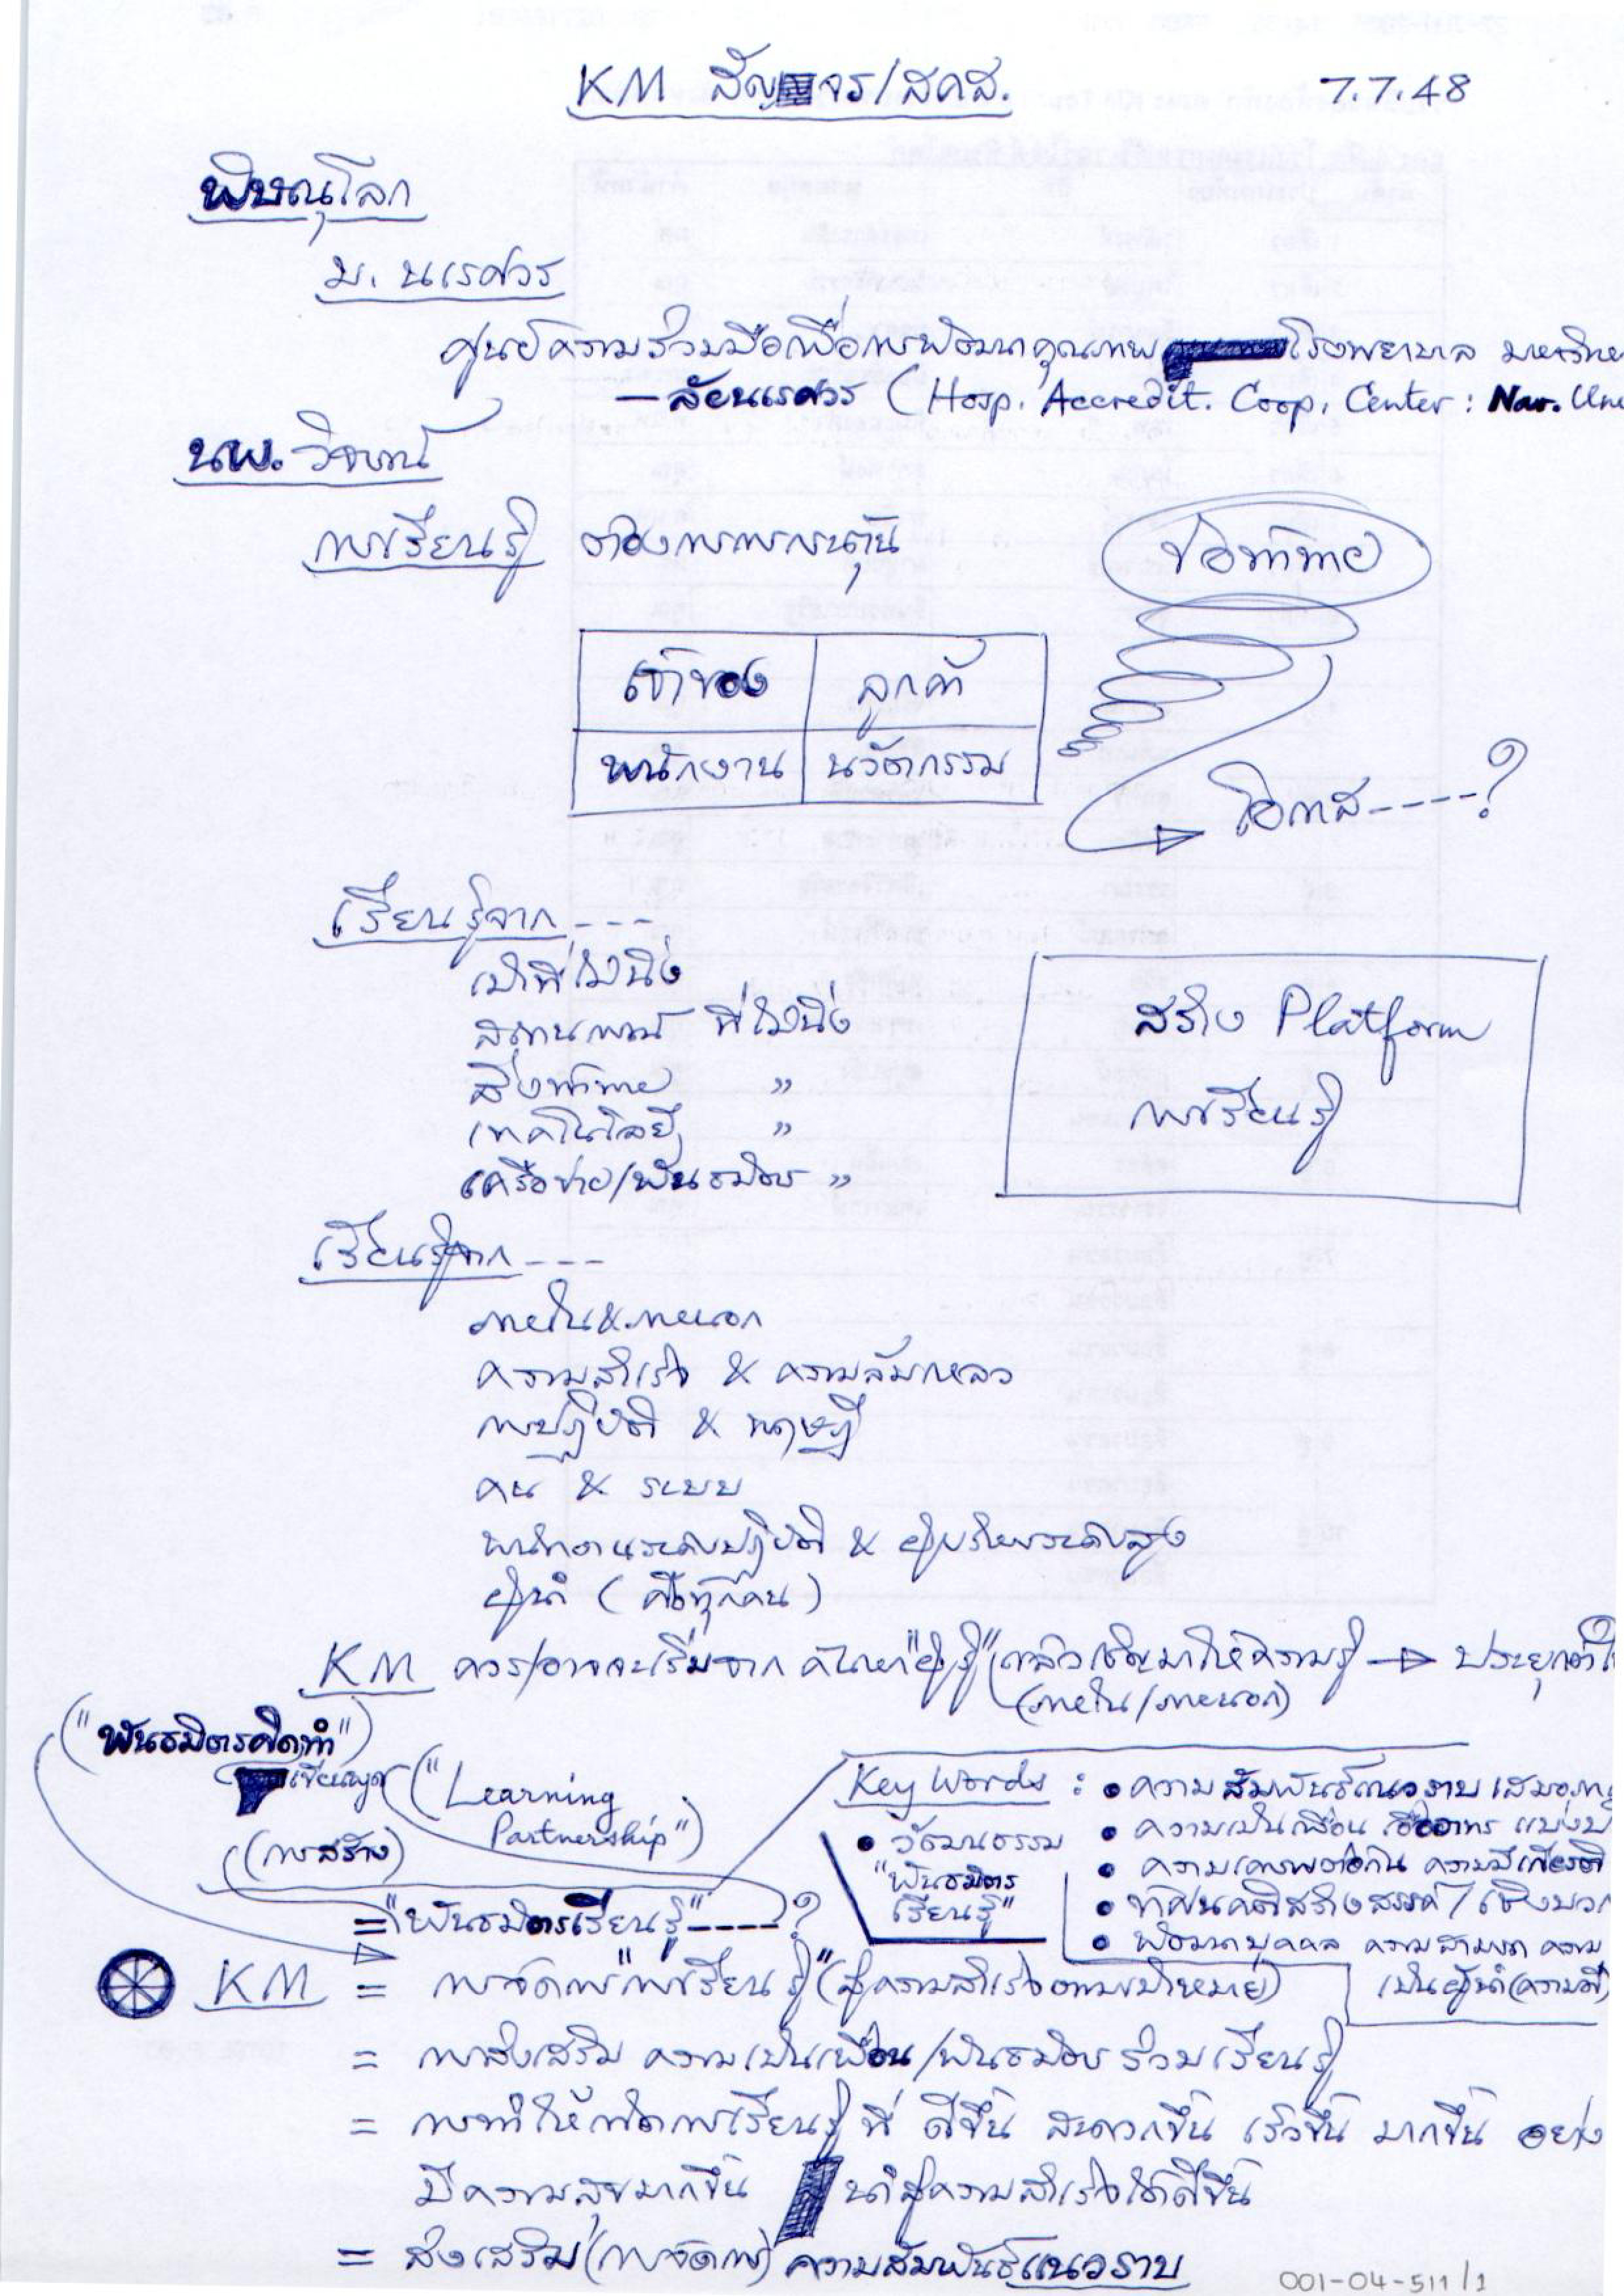 KM สัญจร/สคส. 7.7.48
พิษณุโลก
ม. นเรศวร
ศูนย์ความร่วมมือเพื่อการพัฒนาคุณภาพ โรงพยาบาล มหาวิทย
–ลัยนเรศวร (Hosp. Accredit. Coop. Center : Nar. Uni
นพ. วิจารณ์
การเรียนรู้ ต้องการการกระตุ้น
ข้อท้าทาย
เจ้าของ ลูกค้า
พนักงาน นวัตกรรม
โอกาส----?
เรียนรู้จาก---
เป้าที่ไม่นิ่ง
สถานการณ์ ที่ไม่นิ่ง
สิ่งท้าทาย "
เทคโนโลยี "
เครือข่าย/พันธมิตร "
สร้าง Platform
การเรียนรู้
เรียนรู้จาก---
ภายใน & ภายนอก
ความสำเร็จ & ความล้มเหลว
การปฏิบัติ & ทฤษฎี
คน & ระบบ
พนักงานระดับปฏิบัติ & ผู้บริหารระดับสูง
ผู้นำ (คือทุกคน)
KM ควร/อาจจะเริ่มจาก ค้นหา"ผู้รู้" แล้วเชิญมาให้ความรู้ → ประยุกต์ใ
(ภายใน/ภายนอก)
("พันธมิตรคิดทำ")
("Learning
Partnership")
(การสร้าง)
="พันธมิตรเรียนรู้"----?
Key Words : • ความสัมพันธ์แนวราบ เสมอภา
• วัฒนธรรม
"พันธมิตร
เรียนรู้"
• ความเป็นเพื่อน เอื้ออาทร แบ่งปั
• ความเคารพต่อกัน ความมีเกียรติ
• ทัศนคติสร้างสรรค์ / เชิงบวก
• พัฒนาบุคคล ความสามารถ ความ
เป็นผู้นำ
KM = การจัดการ"การเรียนรู้" (สู่ความสำเร็จตามเป้าหมาย)
= การส่งเสริม ความเป็นเพื่อน/พันธมิตร ร่วมเรียนรู้
= การทำให้เกิดการเรียนรู้ ที่ ดีขึ้น สะดวกขึ้น เร็วขึ้น มากขึ้น อย่าง
มีความสุขมากขึ้น นำสู่ความสำเร็จได้ดีขึ้น
= ส่งเสริม (การจัดการ) ความสัมพันธ์แนวราบ
001-04-511/1